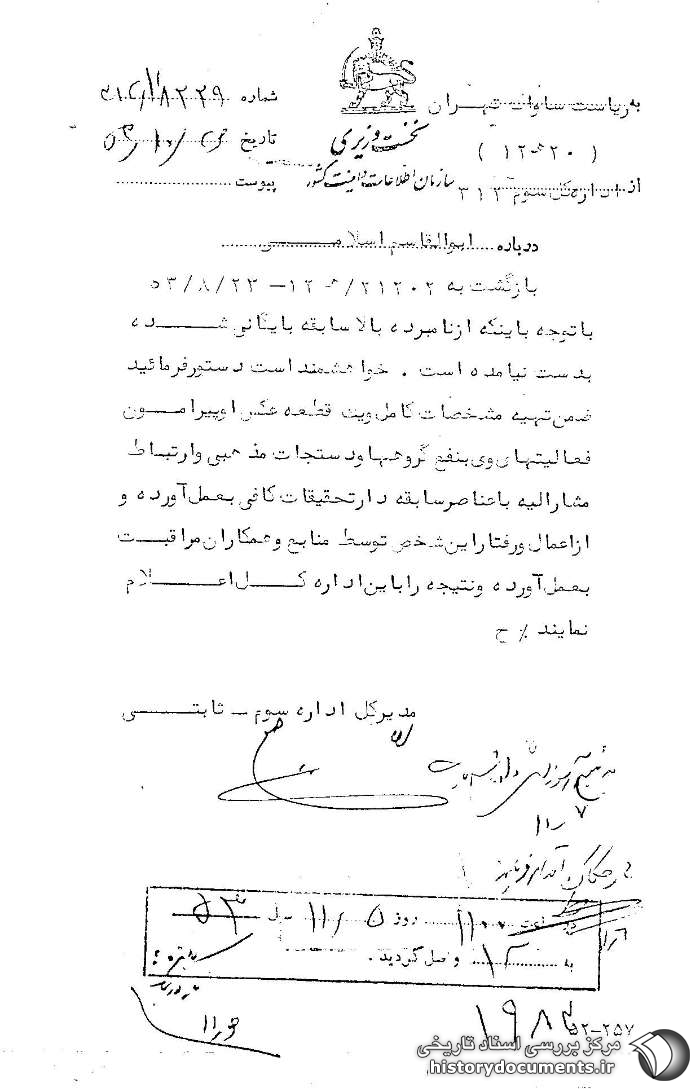 به ریاست ساواک تهران
( ۲۰ ه‍ ۱۲ )
از اداره کل سوم ۳۱۲
نخست وزیری
سازمان اطلاعات و امنیت کشور
شماره ۳۱۲/۸۲۲۹
تاریخ
پیوست
درباره ابوالقاسم اسلامی
بازگشت به ۲۱۲۰۲/ه‍ ۱۲ – ۵۳/۸/۲۳
باتوجه باینکه ازنامبرده بالا سابقه بایگانی شده
بدست نیامده است . خواهشمند است دستورفرمائید
ضمن تهیه مشخصات کامل ویک قطعه عکس اوپیرامون
فعالیتهای وی بنفع گروهها ودستجات مذهبی وارتباط
مشارالیه باعناصرسابقه دارتحقیقات کافی بعمل آورده و
ازاعمال ورفتاراین شخص توسط منابع وهمکاران مراقبت
بعمل آورده ونتیجه راباین اداره کل اعلام
نمایند ٪ ح
مدیرکل اداره سوم – ثابتی
در ساعت ۱۱۰۰ روز ۱۱/۵ سال ۵۳
به ۱۲ وصل گردید .
۵۲-۲۵۷
مرکز بررسی اسناد تاریخی
historydocuments.ir